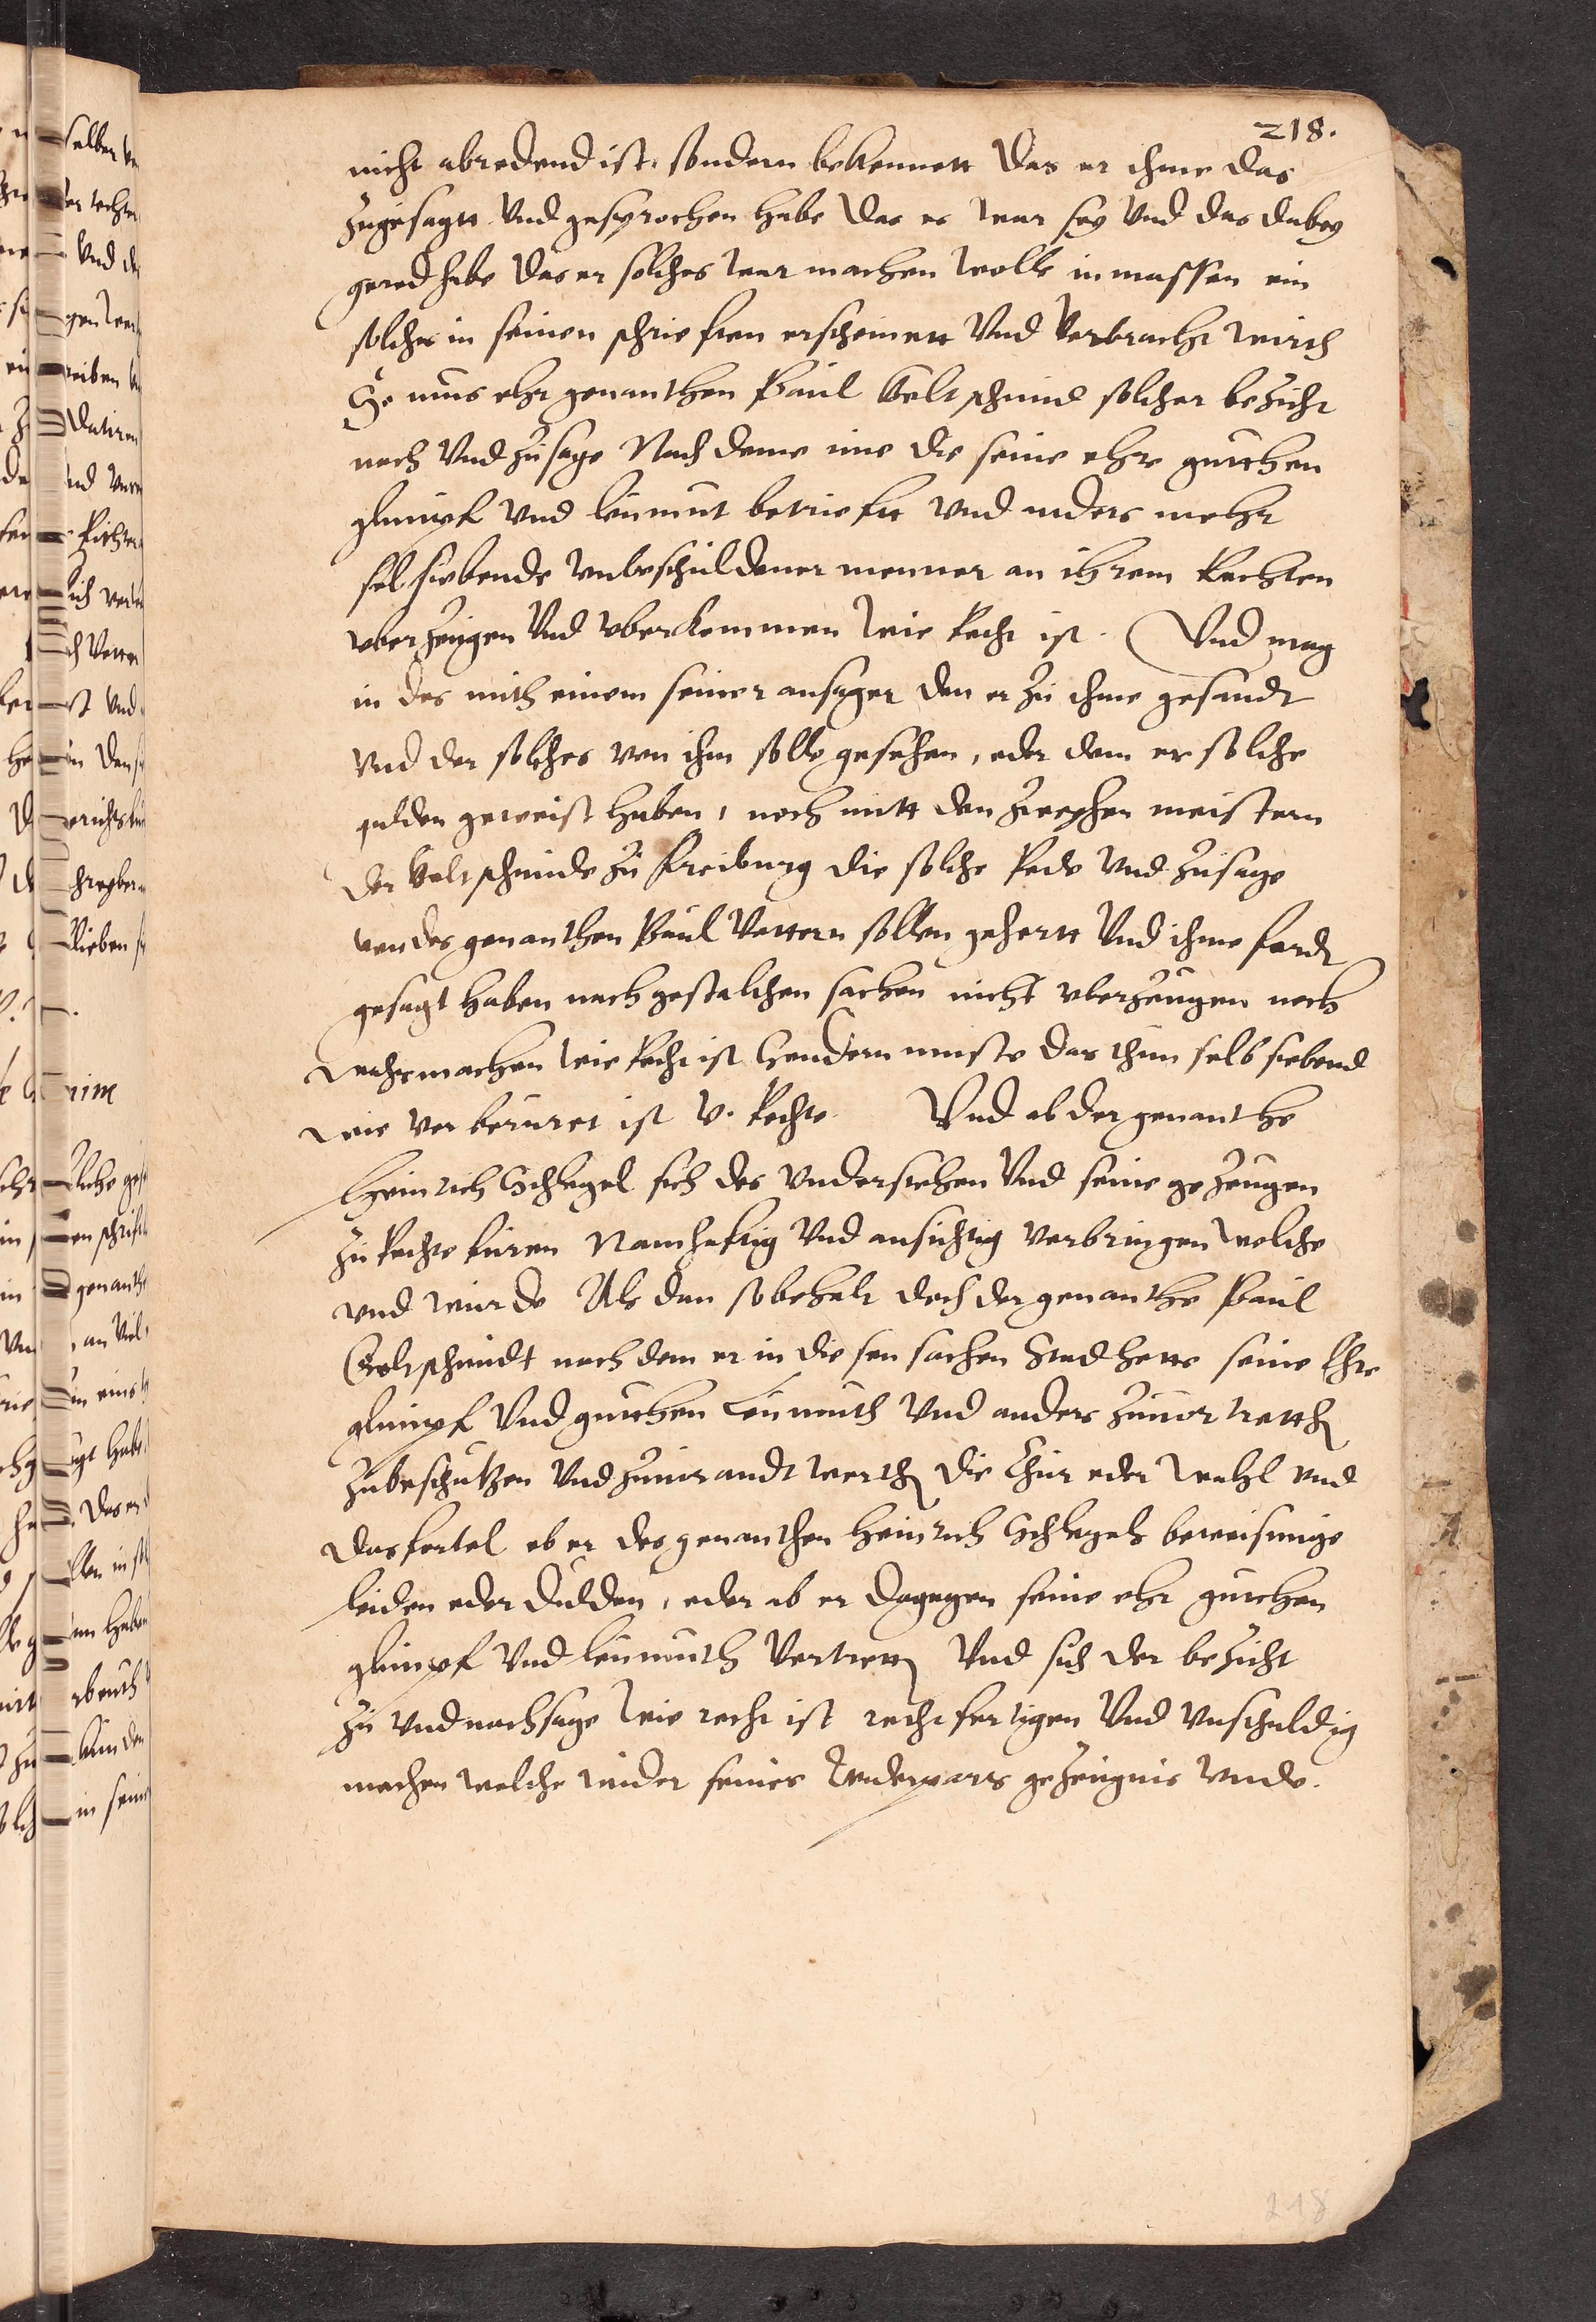 218.
nicht abredend ist, sondern bekennett das er ihme das
zugesagtt Vnd gesprochen habe das es war sey Vnd das dabey
gered habe das er solches war machen wolle inmassen ein
solchs in seinen schrieften erscheinett Vnd Vorbracht wirth
So mus ehr genanthen Paul Goltschmid solcher bezicht
nach Vnd zusage Nach deme ime die seine ehre guthen
glimpf Vnd leumut betriefft Vnd anders mehr
selsiebende vnbeschuldener menner an ihrem Rechten
vberzeugen Vnd vberkommen wie Recht ist. Vnd mag
in des mith einem seiner ansager den er zu ihme gesandt
Vnd der solches von ihm solle gesehen, oder dem er solche
gulden geweist haben, noch mitt den zweyhen meistern
der Goltschmide zu Freiburg die solche Rede Vnd zusage
von des genanthen Paul Vettern sollen gehortt Vnd ihme fordt
gesagt haben nach gestalchen sachen nicht vberzeugen noch
wahrmachen wie Recht ist Sondern muste das thun selb siebend
wie vor beruret ist V. Rechts Vnd ab der genanthe
Heinrich Schlegel sich des vndersiehen Vnd seine gezeugen
zu Rechte furen Namhafftig Vnd ansichtig vorbringen welche
vnd wurde Als dan so behalt doch der genanthe Paul
Goltschmidt nach dem er in diesen sachen Stad hette seine Ehre
glimpf Vnd guthen Leumuth Vnd anders zuuortretth
zubeschutzen Vnd zuuorandtwerth die Chur oder wahl vnd
das fortel ob er des genanthen Heinrich Schlegels beweisunge
leiden oder dulden, oder ab er dagegen seine ehr guthen
glimpf Vnd leumuth Vertrett Vnd sich der bezicht
zu vnd nachsage wie recht ist rechtfertigen Vnd vnschuldig
machen welche wider seines wederparts gezeugnis vnde.
218